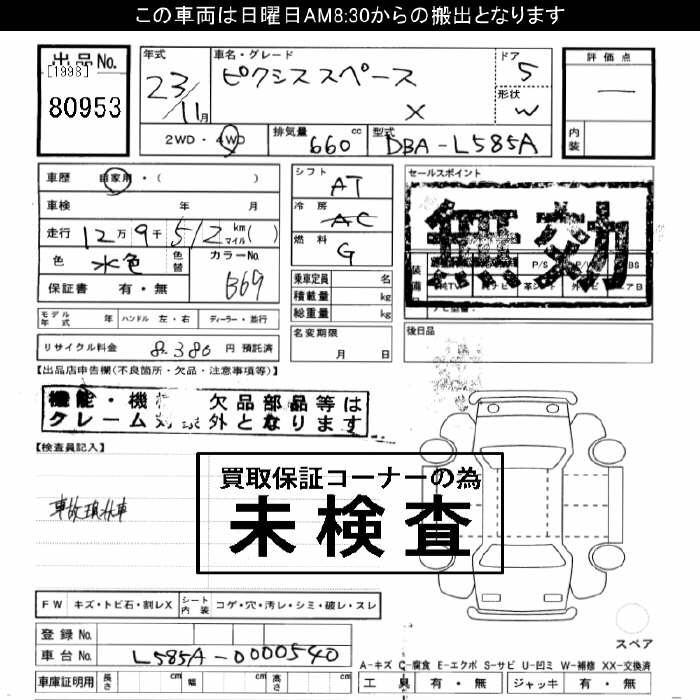 この車両は日曜日AM8:30からの搬出となります
出品No.
[1998]
80953
年式
23/11月
車名・グレード
ピクシススペース
X
ドア
5
形状
W
評価点
—
内装
2WD・4WD
排気量
660 cc
型式
DBA-L585A
車歴 自家用・( )
車検 年 月
走行 12万9千512 km マイル ( )
色 水色 色替
カラーNo.
B69
保証書 有・無
シフト
AT
冷房
AC
燃料
G
乗車定員 名
積載量 kg
総重量 kg
名変期限
月 日
セールスポイント
無効
装備
P/S
後日品
モデル年式 年 ハンドル 左・右 ディーラー・並行
リサイクル料金 8,380 円 預託済
【出品店申告欄(不良箇所・欠品・注意事項等)】
機能・機 欠品部品等は
クレーム対象外となります
【検査員記入】
買取保証コーナーの為
未検査
事故現状車
FW キズ・トビ石・割レX シート内装 コゲ・穴・汚レ・シミ・破レ・スレ
登録No.
車台No. L585A-0000540
車庫証明用 長さ cm 幅 cm 高さ cm
スペア
A-キズ C-腐食 E-エクボ S-サビ U-凹ミ W-補修 XX-交換済
工具 有・無 ジャッキ 有・無